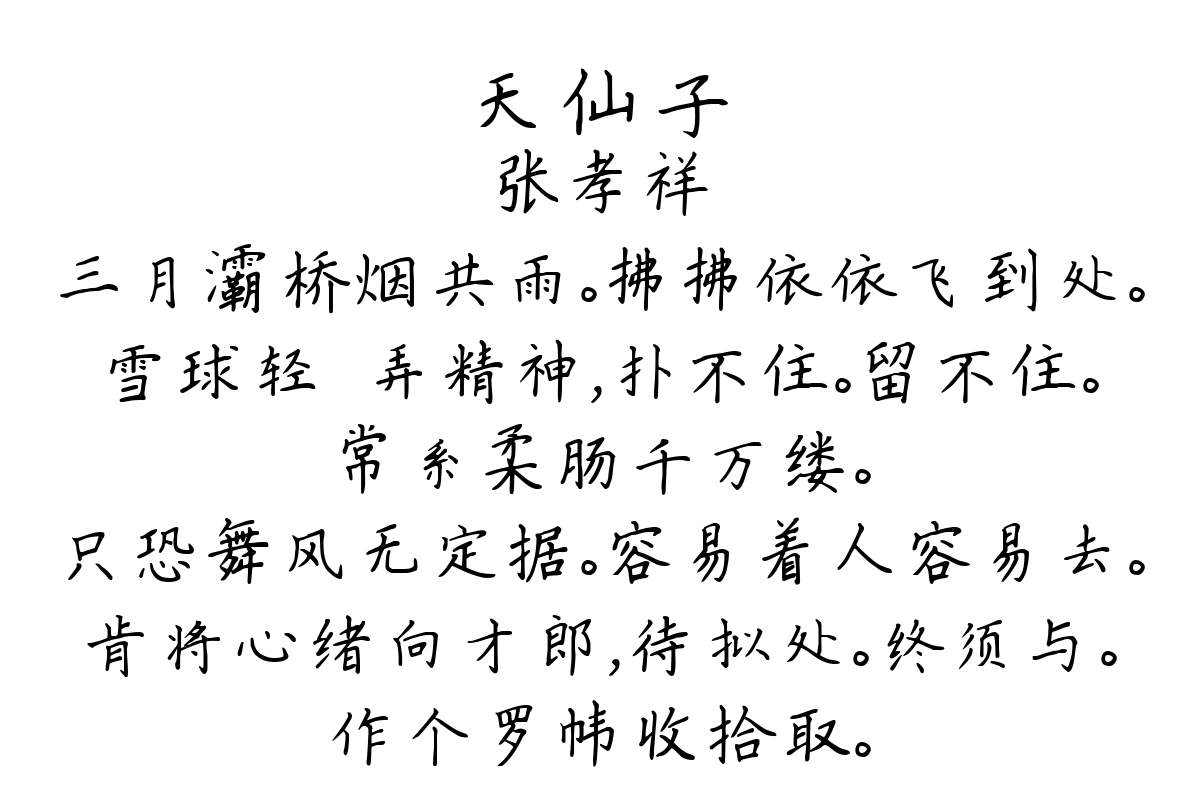 天仙子
张孝祥
三月灞桥烟共雨。拂拂依依飞到处。
雪球轻 弄精神,扑不住。留不住。
常系柔肠千万缕。
只恐舞风无定据。容易着人容易去。
肯将心绪向才郎,待拟处。终须与。
作个罗帏收拾取。